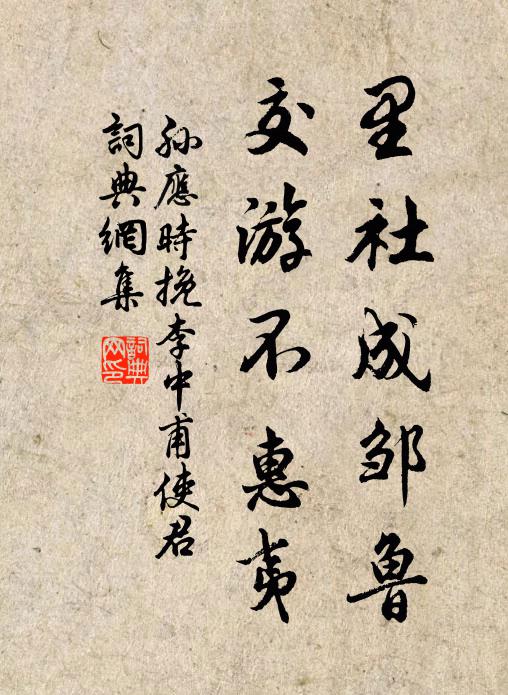 里社成邹鲁
交游不惠夷
孙應時挽李中甫使君
詞典網集
詞典網印